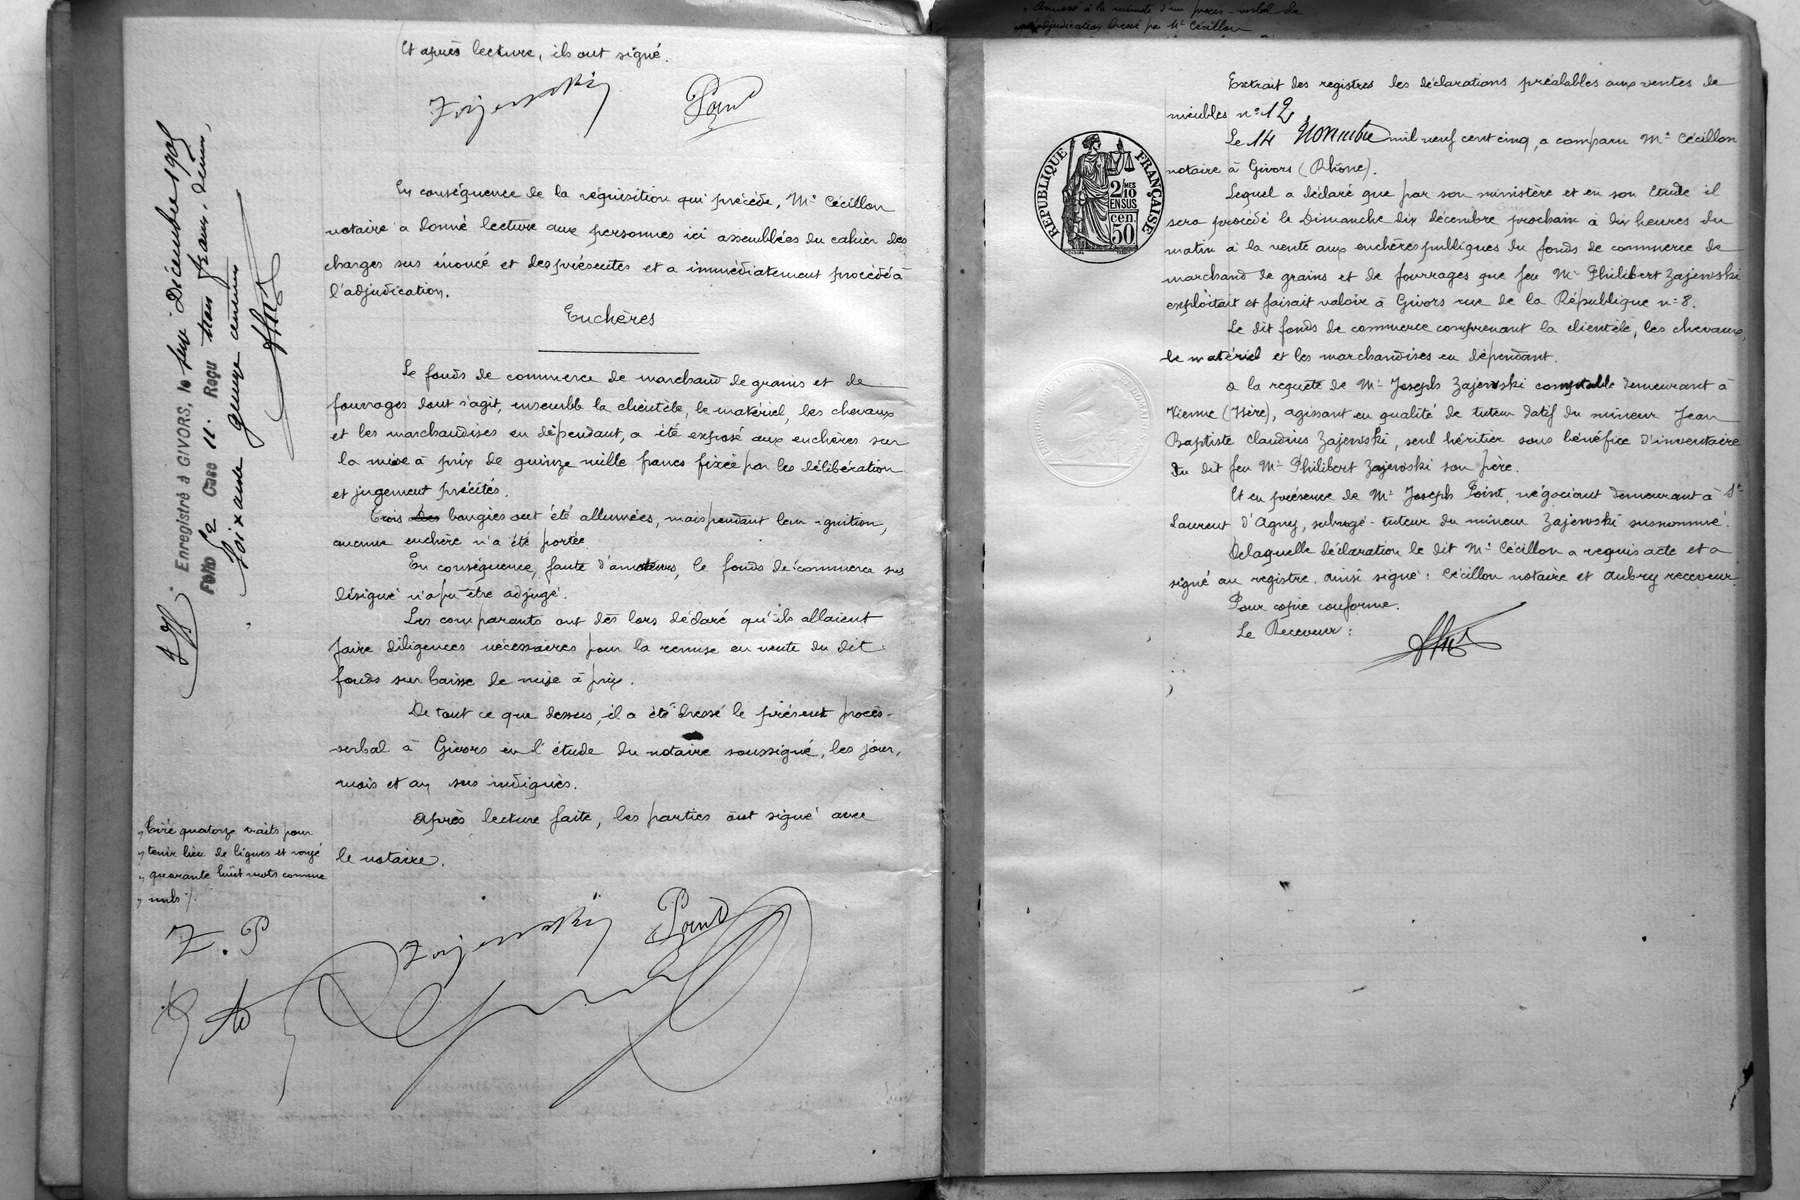 Et après lecture, ils ont signé.
Zajewski Point
En conséquence de la réquisition qui précède, Me Cécillon
notaire a donné lecture aux personnes ici assemblées du cahier des
charges sus énoncé et des présentes et a immédiatement procédé à
l'adjudication.
Enchères
Le fonds de commerce de marchand de grains et de
fourrages dont s'agit, ensemble la clientèle, le matériel, les chevaux
et les marchandises en dépendant, a été exposé aux enchères sur
la mise à prix de quinze mille francs fixée par les délibération
et jugement précités.
Trois des bougies ont été allumées, mais pendant leur ignition,
aucune enchère n'a été portée.
En conséquence, faute d'amateurs, le fonds de commerce sus
désigné n'a pu être adjugé.
Les comparants ont dès lors déclaré qu'ils allaient
faire diligences nécessaires pour la remise en vente du dit
fonds sur baisse de mise à prix.
De tout ce que dessus, il a été dressé le présent procès-
verbal à Givors en l'étude du notaire soussigné, les jour,
mois et an sus indiqués.
Après lecture faite, les parties ont signé avec
le notaire.
Zajewski Point
Enregistré à GIVORS, le Décembre 1905
Folio 52 Case 11. Reçu trois francs, décimes
soixante quinze centimes
Tiré quatorze traits pour
tenir lieu de lignes et rayé
quarante huit mots comme
nuls ./.
Z. P
Annexé à la minute d'un procès-verbal de
adjudication dressé par Me Cécillon
RÉPUBLIQUE FRANÇAISE
2 MES
10
EN SUS
cen.
50
Extrait des registres des déclarations préalables aux ventes de
meubles n° 12
Le 14 Novembre mil neuf cent cinq, a comparu Me Cécillon
notaire à Givors (Rhône).
Lequel a déclaré que par son ministère et en son Etude il
sera procédé le Dimanche dix décembre prochain à dix heures du
matin à la vente aux enchères publiques du fonds de commerce de
marchand de grains et de fourrages que feu Mr Philibert Zajewski
exploitait et faisait valoir à Givors rue de la République n° 8.
Le dit fonds de commerce comprenant la clientèle, les chevaux,
le matériel et les marchandises en dépendant.
A la requête de Mr Joseph Zajewski comptable demeurant à
Vienne (Isère), agissant en qualité de tuteur datif du mineur Jean
Baptiste Claudius Zajewski, seul héritier sous bénéfice d'inventaire
du dit feu Mr Philibert Zajewski son père.
Et en présence de Mr Joseph Point, négociant demeurant à St
Laurent d'Agny, subrogé-tuteur du mineur Zajewski susnommé.
De laquelle déclaration le dit Me Cécillon a requis acte et a
signé au registre. Ainsi signé : Cécillon notaire et Aubry receveur
Pour copie conforme.
Le Receveur :